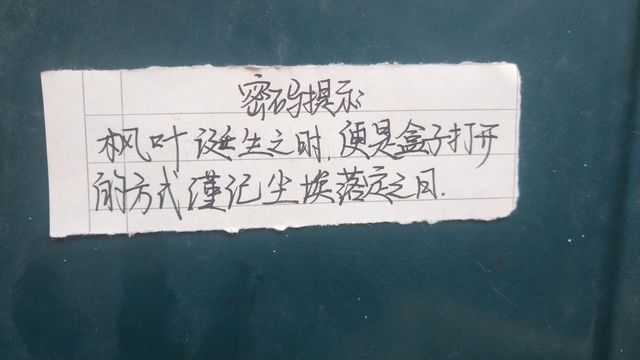 密码提示
枫叶诞生之时,便是盒子打开
的方式谨记尘埃落定之日.